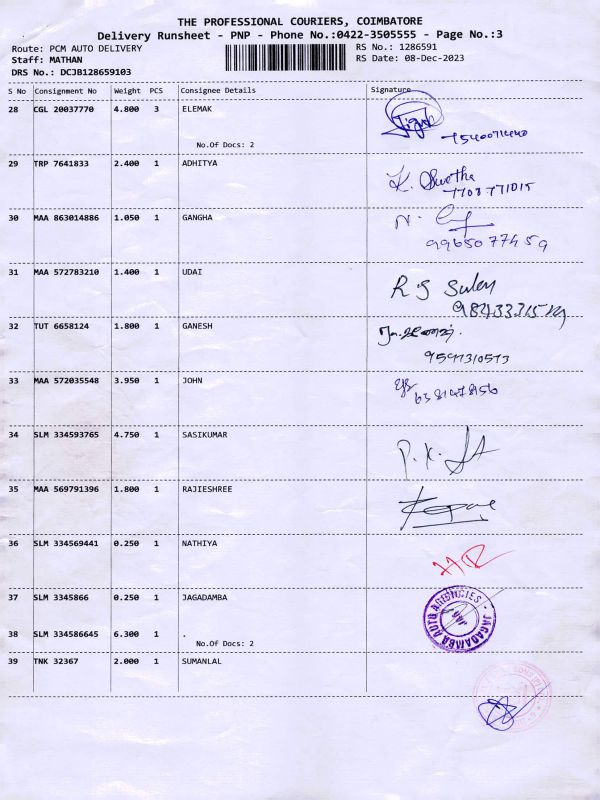 THE PROFESSIONAL COURIERS, COIMBATORE
Delivery Runsheet - PNP - Phone No.:0422-3505555 - Page No.:3
Route: PCM AUTO DELIVERY
RS No.: 1286591
Staff: MATHAN
RS Date: 08-Dec-2023
DRS No.: DCJB128659103
S No Consignment No Weight PCS Consignee Details Signature
28 CGL 20037770 4.800 3 ELEMAK
No.Of Docs: 2
29 TRP 7641833 2.400 1 ADHITYA
K. Swetha
7708771015
30 MAA 863014886 1.050 1 GANGHA
9965077459
31 MAA 572783210 1.400 1 UDAI
32 TUT 6658124 1.800 1 GANESH
33 MAA 572035548 3.950 1 JOHN
34 SLM 334593765 4.750 1 SASIKUMAR
35 MAA 569791396 1.800 1 RAJIESHREE
36 SLM 334569441 0.250 1 NATHIYA
37 SLM 3345866 0.250 1 JAGADAMBA
JAGADAMBA AUTO AGENCIES
38 SLM 334586645 6.300 1 .
No.Of Docs: 2
39 TNK 32367 2.000 1 SUMANLAL